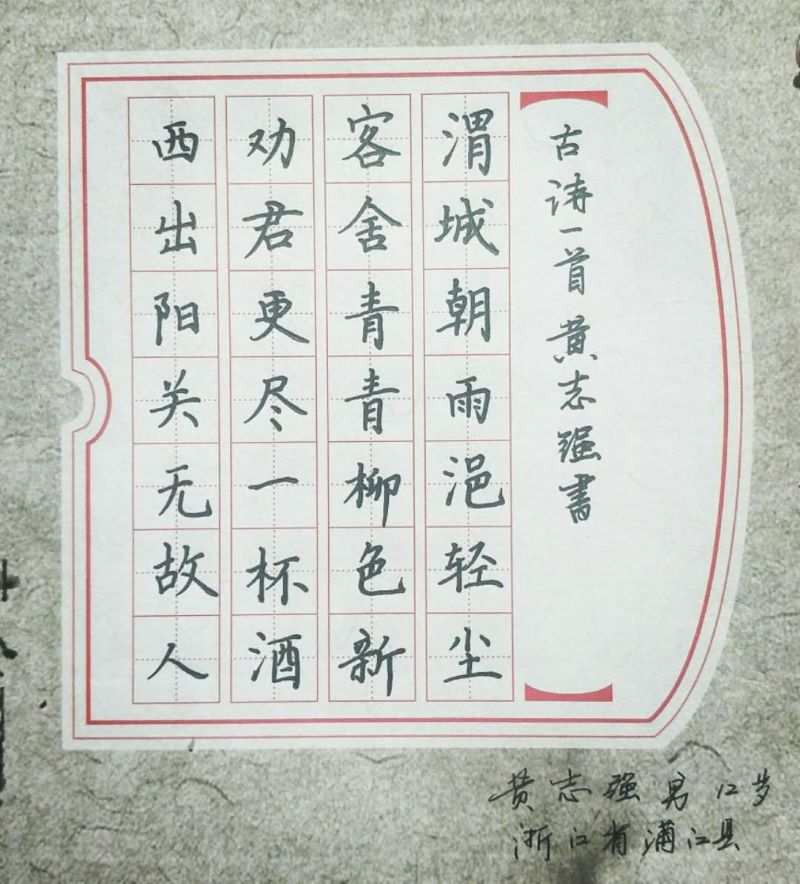 古诗一首 黄志强书
渭城朝雨浥轻尘
客舍青青柳色新
劝君更尽一杯酒
西出阳关无故人
黄志强 男 12岁
浙江省浦江县